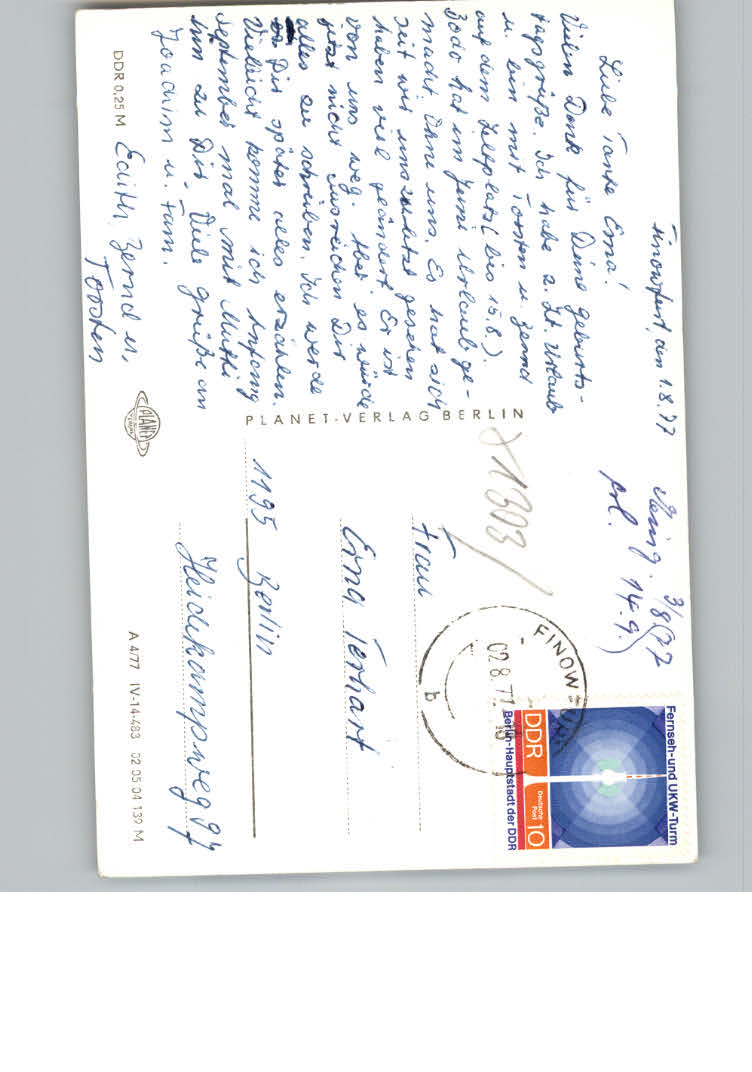 Finowfurt, den 1.8.77
Liebe Tante Erna!
Vielen Dank für Deine Geburts-
tagsgrüße. Ich habe z. Zt. Urlaub
u. bin mit Torsten u. Bernd
auf dem Zeltplatz (bis 15.8.).
Bodo hat im Juni Urlaub ge-
macht. Ohne uns. Es hat sich
seit wir uns zuletzt gesehen
haben viel geändert. Er ist
von uns weg. Aber es würde
jetzt nicht ausreichen Dir
alles zu schreiben. Ich werde
Dir später alles erzählen.
Vielleicht komme ich Anfang
September mal mit Mutti
hin zu Dir. Viele Grüße an
Joachim u. Fam.
Edith, Bernd u.
Torsten
DDR 0,25 M
PLANET-VERLAG BERLIN
PLANET
VERLAG
BERLIN
Eing. 3/8.77
erl. 14.9.)
81303
Frau
Erna Terhart
1195 Berlin
Heidekampweg 97
A 4/77 IV-14-483 02 05 04 139 M
FINOWFURT
02.8.77
b
Fernseh-und UKW-Turm
DDR
Deutsche
Post
10
Berlin-Hauptstadt der DDR